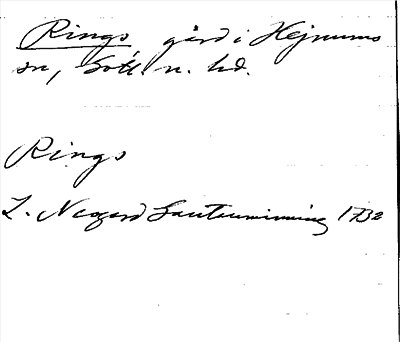 Rings gård i Hejnums
sn, Gotl. n. hd.
Rings
L. Negard Lautervinning 1732